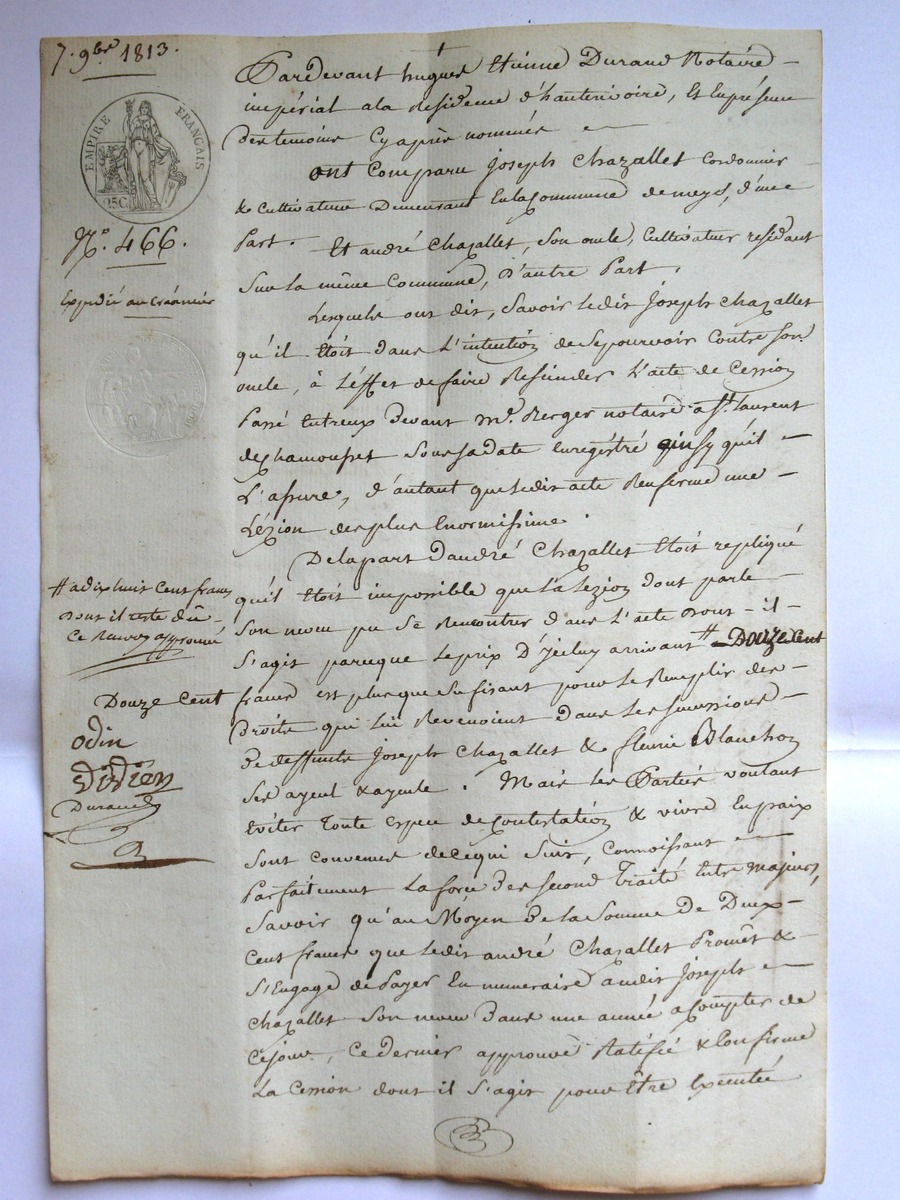 7. 9bre 1813.
EMPIRE FRANÇAIS
25C
N.º 466.
Expédié au Créancier
Pardevant hugues Etienne Durand Notaire
impérial ala Residence d'hauterivoire, Et Enprésence
Destemoins Cyaprès nommés
ont Comparu Joseph Chazallet Cordonnier
& Cultivateur Demeurant Enla Commune demeys, d'une
Part. Et andré Chazallet, Son oncle, Cultivateur residant
Sur la même Commune, D'autre Part.
Lesquels ont dit, Savoir ledit Joseph Chazallet
qu'il Etoit dans L'intention de Sepourvoir Contre Son
oncle, à L'effet defaire Rescinder L'acte de Cession
Passé Entreux Devant Me. Berger notaire a St. Laurent
dechamousset Sous sa date Enregistré Ainsy qu'il
L'assure, d'autant que ledit acte Renferme une
Lézion desplus Enormissime.
Delapart d'andré Chazallet Etoit repliqué
qu'il Etoit impossible que la Lezion dont parle
Son neveu pu Se Rencontrer dans L'acte Dont il
S'agit parceque Le prix D'Jceluy arrivant # Douze Cent
francs est plus que Sufisant pour Le Remplir des
Droits qui Lui Revenoient Dans Les Successions
De deffunts Joseph Chazallet & fleurie Blanchon
Ses ayeul & ayeule. Mais les Parties voulant
Eviter Toute Espece de Contestation & vivre En paix
Sont convenues de Cequi Suit, Connoissant
Parfaitement La force Des second Traité Entre Majeurs,
Savoir qu'au Moyen De la Somme de Deux
Cent francs que ledit andré Chazallet Promet &
S'Engage de Payer En numeraire audit Joseph
Chazallet Son neveu Dans une année aCompter de
Cejour, Ce Dernier approuve Ratifie & Confirme
La Cession dont il S'agit pour Être Executée
# adixhuit Cent francs
Dont il reste dû
Ce Renvoy approuvé
Douze Cent
odin
Didien
Durand